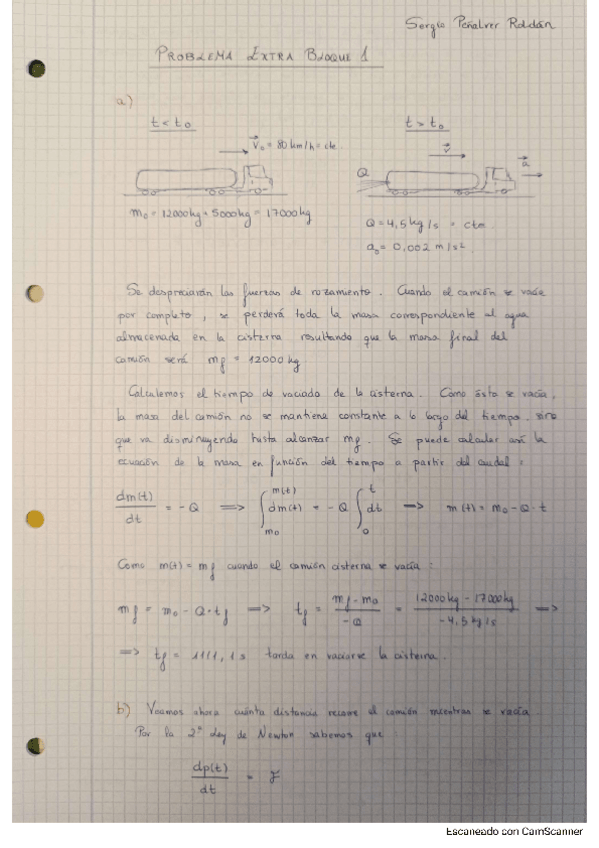 Sergio Peñalver Roldán
PROBLEMA EXTRA BLOQUE 1
a)
t < t₀
t > t₀
V⃗₀ = 80 km/h = cte
v⃗
a⃗
Q
m₀ = 12000kg + 5000kg = 17000kg
Q = 4,5 kg/s = cte
a₀ = 0,002 m/s²
Se despreciarán las fuerzas de rozamiento. Cuando el camión se vacíe
por completo, se perderá toda la masa correspondiente al agua
almacenada en la cisterna resultando que la masa final del
camión será m_f = 12000 kg
Calculemos el tiempo de vaciado de la cisterna. Como ésta se vacía,
la masa del camión no se mantiene constante a lo largo del tiempo, sino
que va disminuyendo hasta alcanzar m_f. Se puede calcular así la
ecuación de la masa en función del tiempo a partir del caudal:
dm(t)/dt = -Q ⟹ ∫_{m₀}^{m(t)} dm(t) = -Q ∫_0^t dt ⟹ m(t) = m₀ - Q·t
Como m(t) = m_f cuando el camión cisterna se vacía:
m_f = m₀ - Q·t_f ⟹ t_f = (m_f - m₀)/-Q = (12000kg - 17000kg)/-4,5kg/s ⟹
⟹ t_f = 1111,1 s tarda en vaciarse la cisterna.
b) Veamos ahora cuánta distancia recorre el camión mientras se vacía.
Por la 2ª Ley de Newton sabemos que:
dp(t)/dt = F
Escaneado con CamScanner